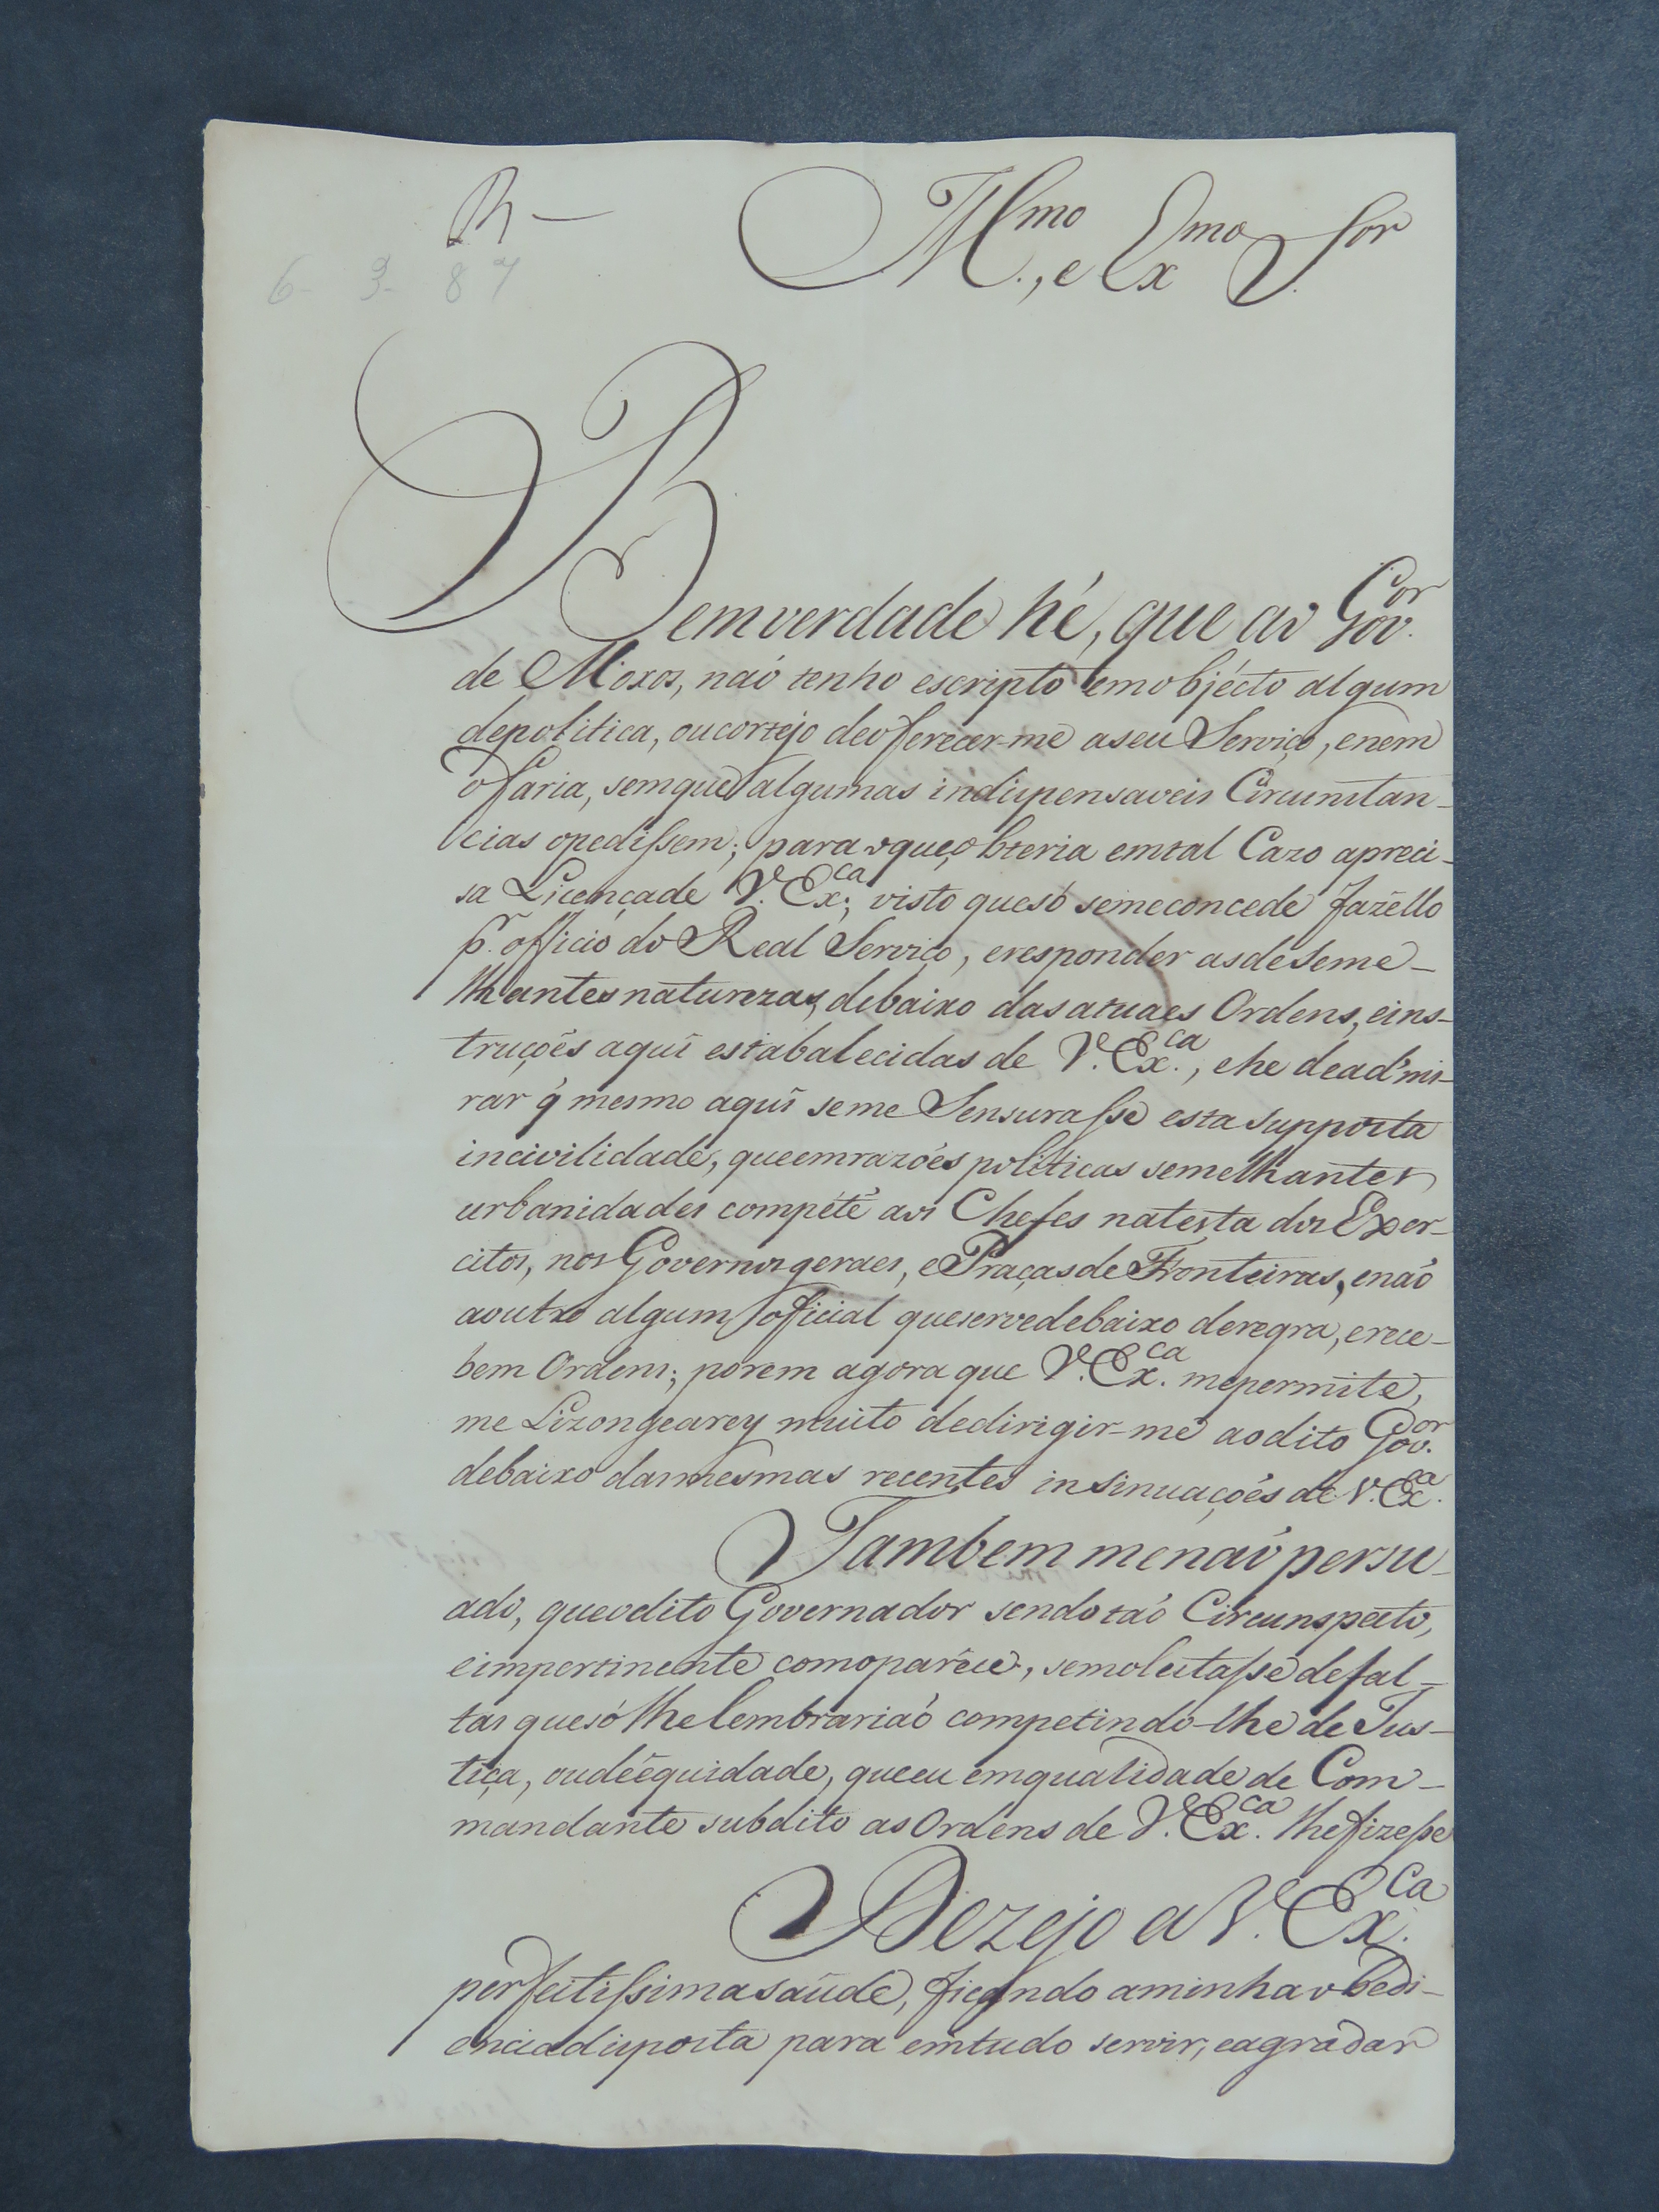 R
Illmo., e Exmo Sor.
6- 3- 87
Bem verdade hé, que ao Govor.
de Moxos, naó tenho escripto em objécto algum
de politica, ou cortejo de offerecer-me a seu Serviço, e nem
o faria, sem que algumas indispensaveis Circunstan-
cias o pedissem; para o que, obteria em tal Cazo a preci-
sa Licença de V. Exca., visto que só se me concede fazêllo
pr. officio do Real Serviço, e responder as de Seme-
lhantes naturezas, debaixo das atuaes Ordens, e ins-
truçoẽs aquî estabalecidas de V. Exca., e he de admi-
rar q̃ mesmo aquî se me Sensurasse esta supposta
incivilidade, que em razoẽs politicas semelhantes
urbanidades compéte aos Chefes na testa dos Exer-
citos, nos Governos geraes, e Praças de Fronteiras, e naó
a outro algum official que serve debaixo de regra, e rece-
bem Ordens; porem agora que V. Exca. me permite,
me Lizongearey muito de dirigir-me ao dito Govor.
debaixo das mesmas recentes insinuaçoẽs de V. Exa.
Tambem me naó persu-
ado, que o dito Governador sendo taó Circunspecto,
e impertinente como paréce, se molestasse de fal-
tas que só lhe lembrariaó competindo-lhe de Jus-
tiça, ou de équidade, que eu em qualidade de Com-
mandante subdito as Ordens de V. Exca. lhe fizesse
Dezejo a V. Exca.
perfeitissima saúde, ficando a minha obedi-
encia disposta para em tudo servir, e agradar